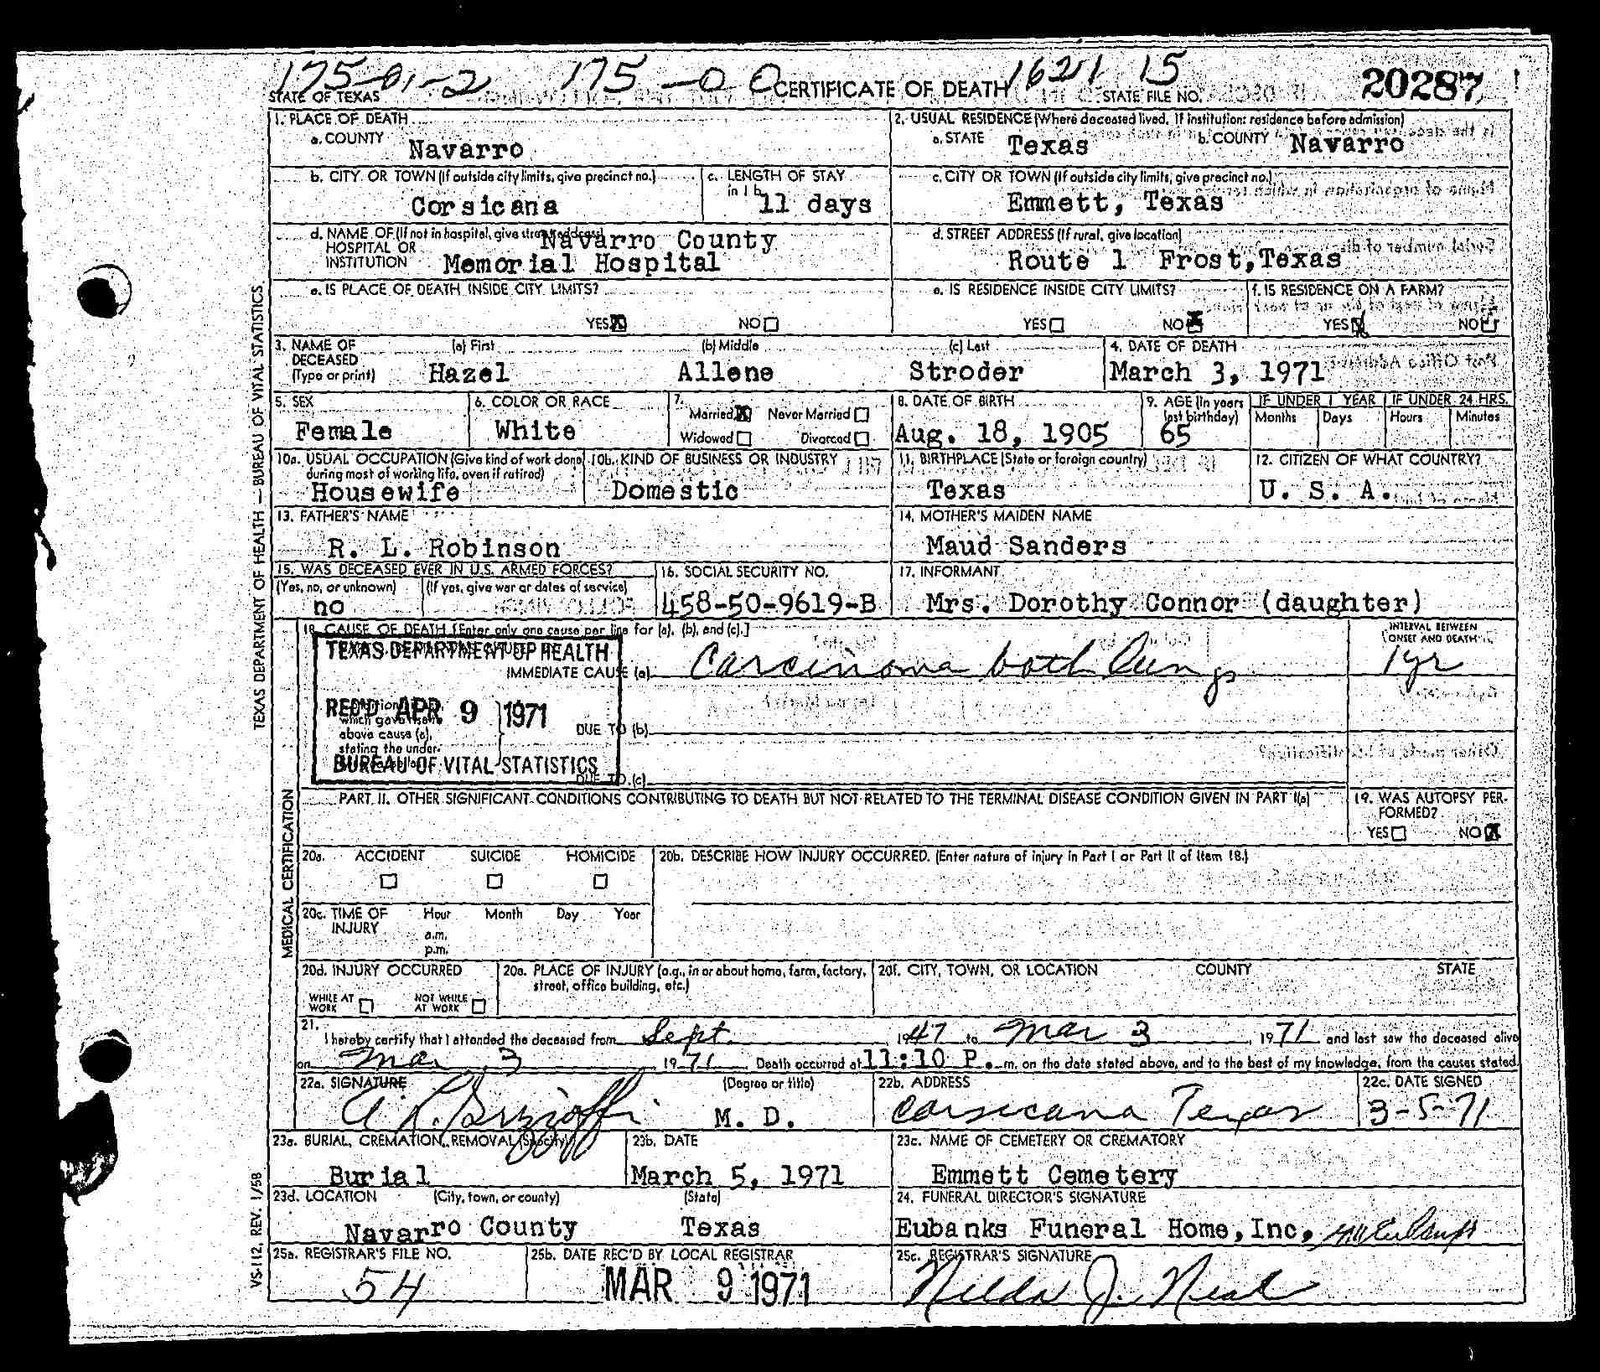 175-01-2 175-00 CERTIFICATE OF DEATH 1621 15 20287
STATE OF TEXAS STATE FILE NO.
1. PLACE OF DEATH
a. COUNTY Navarro
2. USUAL RESIDENCE (Where deceased lived. If institution: residence before admission)
a. STATE Texas b. COUNTY Navarro
b. CITY OR TOWN (If outside city limits, give precinct no.) Corsicana
c. LENGTH OF STAY in 1 b. 11 days
c. CITY OR TOWN (If outside city limits, give precinct no.) Emmett, Texas
d. NAME OF (If not in hospital, give street address) HOSPITAL OR INSTITUTION Navarro County Memorial Hospital
d. STREET ADDRESS (If rural, give location) Route 1 Frost, Texas
e. IS PLACE OF DEATH INSIDE CITY LIMITS? YES X NO
e. IS RESIDENCE INSIDE CITY LIMITS? YES NO X
f. IS RESIDENCE ON A FARM? YES X NO
3. NAME OF DECEASED (Type or print) (a) First Hazel (b) Middle Allene (c) Last Stroder
4. DATE OF DEATH March 3, 1971
5. SEX Female
6. COLOR OR RACE White
7. Married X Never Married Widowed Divorced
8. DATE OF BIRTH Aug. 18, 1905
9. AGE (In years last birthday) 65
IF UNDER 1 YEAR Months Days
IF UNDER 24 HRS. Hours Minutes
10a. USUAL OCCUPATION (Give kind of work done during most of working life, even if retired) Housewife
10b. KIND OF BUSINESS OR INDUSTRY Domestic
11. BIRTHPLACE (State or foreign country) Texas
12. CITIZEN OF WHAT COUNTRY? U. S. A.
13. FATHER'S NAME R. L. Robinson
14. MOTHER'S MAIDEN NAME Maud Sanders
15. WAS DECEASED EVER IN U.S. ARMED FORCES? (Yes, no, or unknown) (If yes, give war or dates of service) no
16. SOCIAL SECURITY NO. 458-50-9619-B
17. INFORMANT Mrs. Dorothy Connor (daughter)
18. CAUSE OF DEATH [Enter only one cause per line for (a), (b), and (c).]
INTERVAL BETWEEN ONSET AND DEATH
TEXAS DEPARTMENT OF HEALTH
IMMEDIATE CAUSE (a) Carcinoma both lungs 1 yr
REC'D APR 9 1971
which gave
above cause (a),
stating the under-
DUE TO (b)
BUREAU OF VITAL STATISTICS
DUE TO (c)
PART II. OTHER SIGNIFICANT CONDITIONS CONTRIBUTING TO DEATH BUT NOT RELATED TO THE TERMINAL DISEASE CONDITION GIVEN IN PART I(a)
19. WAS AUTOPSY PERFORMED? YES NO X
20a. ACCIDENT SUICIDE HOMICIDE
20b. DESCRIBE HOW INJURY OCCURRED. (Enter nature of injury in Part I or Part II of Item 18.)
20c. TIME OF INJURY Hour Month Day Year
a.m.
p.m.
20d. INJURY OCCURRED WHILE AT WORK NOT WHILE AT WORK
20e. PLACE OF INJURY (e.g., in or about home, farm, factory, street, office building, etc.)
20f. CITY, TOWN, OR LOCATION COUNTY STATE
21. I hereby certify that I attended the deceased from Sept. 1947 to Mar 3, 1971 and last saw the deceased alive
on Mar 3, 1971. Death occurred at 11:10 P. m. on the date stated above, and to the best of my knowledge, from the causes stated.
22a. SIGNATURE (Degree or title) M. D.
22b. ADDRESS Corsicana Texas
22c. DATE SIGNED 3-5-71
23a. BURIAL, CREMATION, REMOVAL (Specify) Burial
23b. DATE March 5, 1971
23c. NAME OF CEMETERY OR CREMATORY Emmett Cemetery
23d. LOCATION (City, town, or county) (State) Navarro County Texas
24. FUNERAL DIRECTOR'S SIGNATURE Eubanks Funeral Home, Inc.
25a. REGISTRAR'S FILE NO. 54
25b. DATE REC'D BY LOCAL REGISTRAR MAR 9 1971
25c. REGISTRAR'S SIGNATURE Nelda J. Neal
TEXAS DEPARTMENT OF HEALTH — BUREAU OF VITAL STATISTICS
MEDICAL CERTIFICATION
VS-112, REV. 1/58